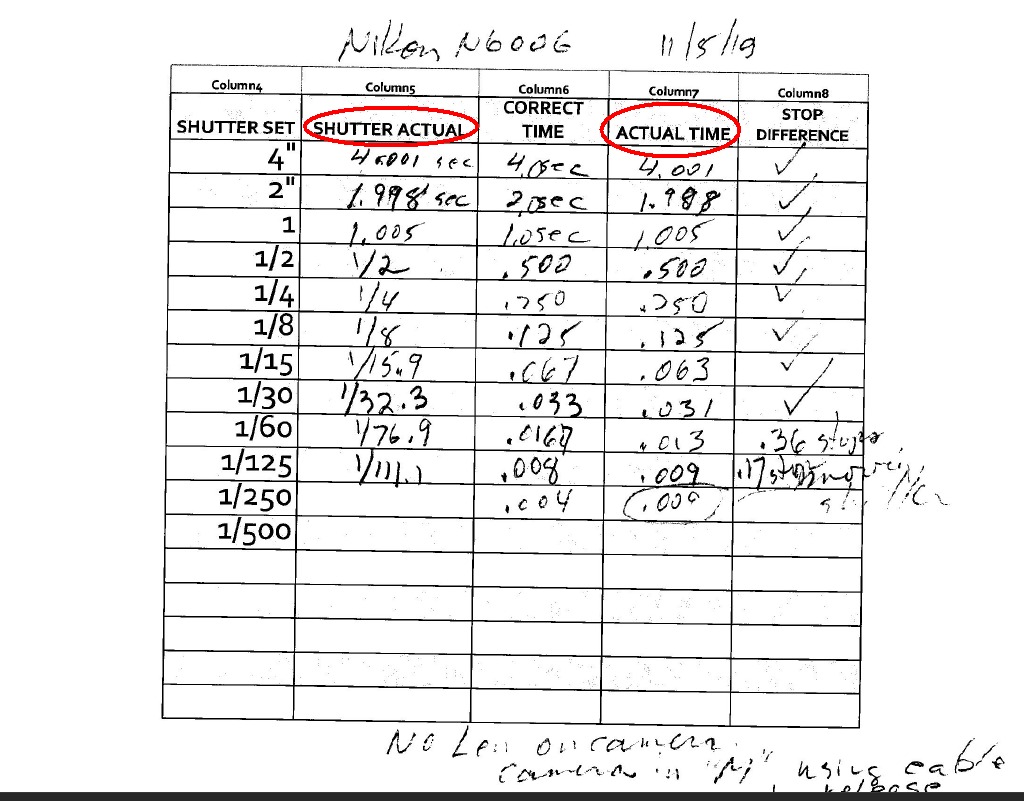 Nikon N6006 11/5/19
Column4 Column5 Column6 Column7 Column8
SHUTTER SET SHUTTER ACTUAL CORRECT TIME ACTUAL TIME STOP DIFFERENCE
4" 4.001 sec 4.0sec 4.001 ✓
2" 1.998 sec 2.0sec 1.988 ✓
1 1.005 1.0sec 1.005 ✓
1/2 1/2 .500 .500 ✓
1/4 1/4 .250 .250 ✓
1/8 1/8 .125 .125 ✓
1/15 1/15.9 .067 .063 ✓
1/30 1/32.3 .033 .031 ✓
1/60 1/76.9 .0167 .013 .36 stops
1/125 1/111.1 .008 .009 .17 stops
1/250 .004 .009
1/500
No Len on camera.
camera in "M" using cable
release